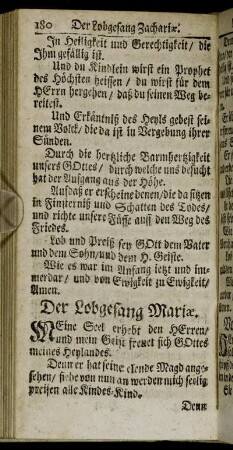 180 Der Lobgesang Zachariæ.
In Heiligkeit und Gerechtigkeit / die
Ihm gefällig ist.
Und du Kindlein wirst ein Prophet
des Höchsten heissen / du wirst für dem
HErrn hergehen / daß du seinen Weg be-
reitest.
Und Erkäntniß des Heyls gebest seinem
Volck / die da ist in Vergebung ihrer
Sünden.
Durch die hertzliche Barmhertzigkeit
unsers GOttes / durch welche uns besucht
hat der Aufgang aus der Höhe.
Auf daß er erscheine denen / die da sitzen
in Finsterniß und Schatten des Todes /
und richte unsere Füsse auff den Weg des
Friedes.
Lob und Preiß sey GOtt dem Vater
und dem Sohn / und dem H. Geiste.
Wie es war im Anfang ietzt und im-
merdar / und von Ewigkeit zu Ewigkeit /
Amen.
Der Lobgesang Mariæ.
MEine Seel erhebt den HErren /
und mein Geist freuet sich GOttes
meines Heylandes.
Denn er hat seine elende Magd ange-
sehen / siehe von nun an werden mich seelig
preisen alle Kindes-Kind.
Denn